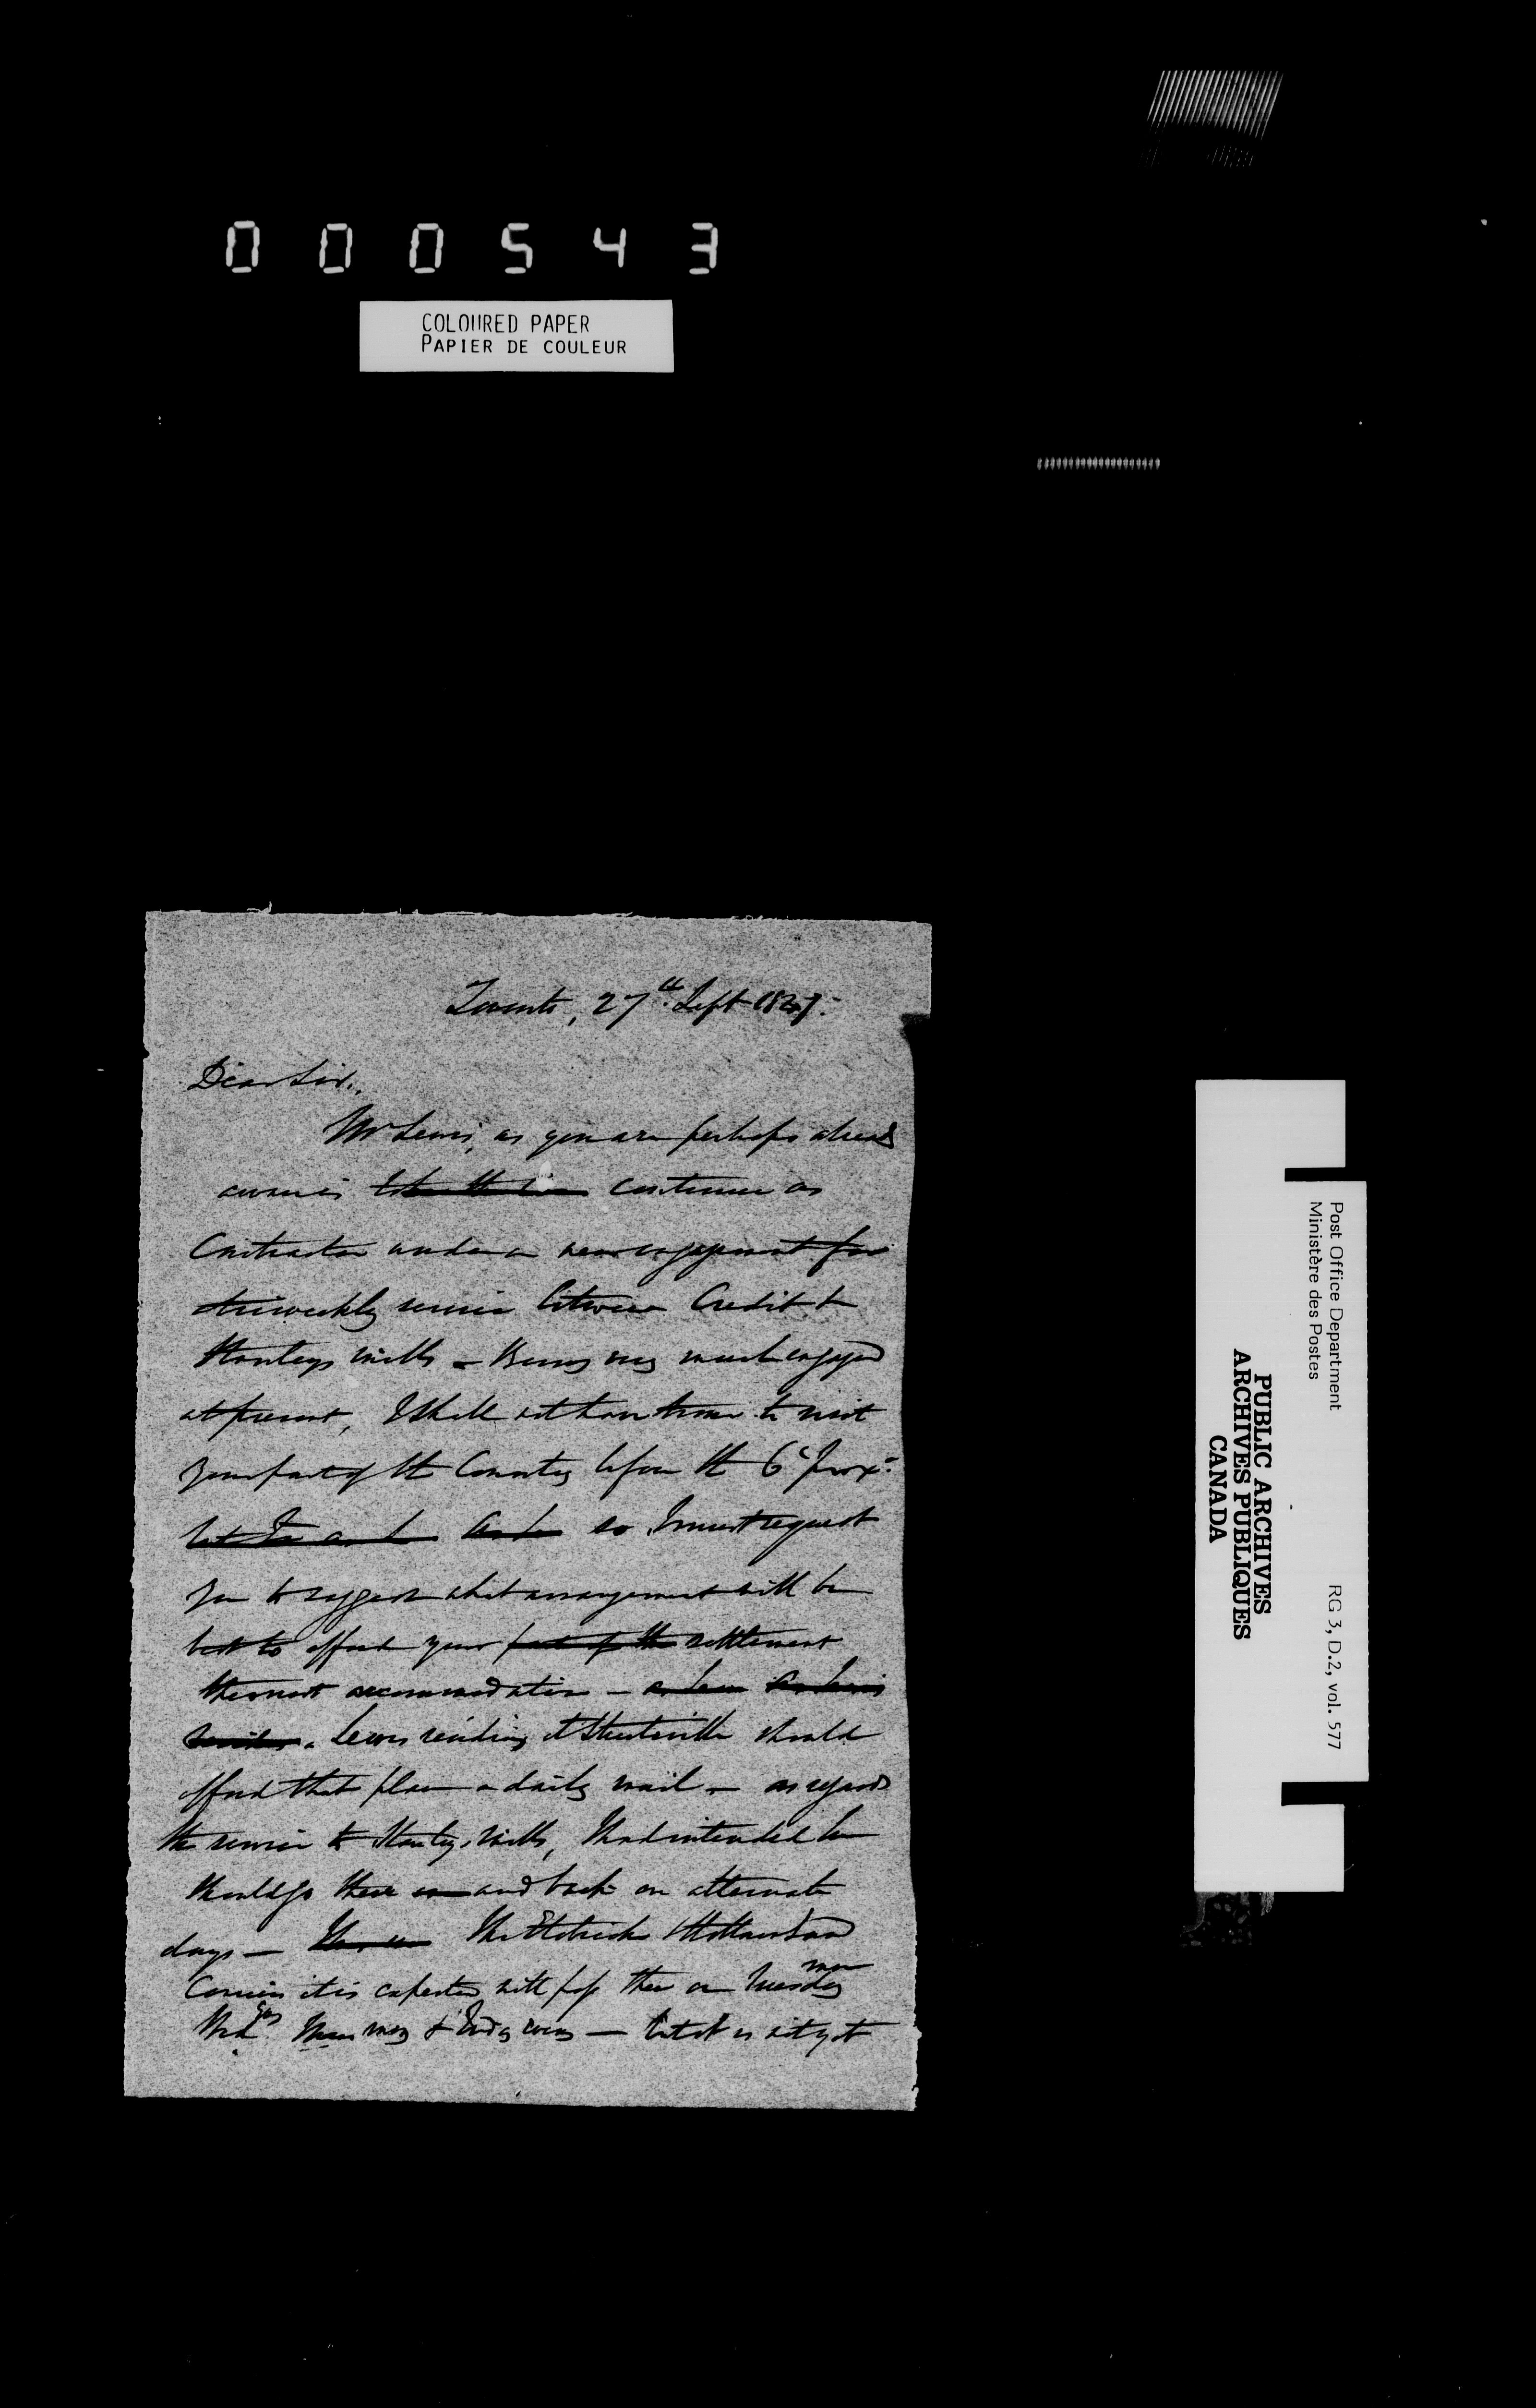 000543
COLOURED PAPER
PAPIER DE COULEUR
Toronto, 27th Sept 1847.
Dear Sir,
Mr Lewis, as you are perhaps already
aware is continue as
Contractor under a new engagement for
triweekly service between Credit &
Stanleys mills - Being very much engaged
at present, I shall not have time to visit
your part of the Country before the 6th prox.
so I must request
you to suggest what arrangement will be
best to afford your part of the settlement
the most accommodation -
Lewis residing at Streetsville should
afford that place a daily mail - as regards
the service to Stanleys Mills, I had intended he
should go there and back on alternate
days - The Etobicoke & Holland
Courier it is expected will pass there on Tuesday
& - but it is not yet
Post Office Department
Ministère des Postes
RG 3, D.2, vol. 577
PUBLIC ARCHIVES
ARCHIVES PUBLIQUES
CANADA